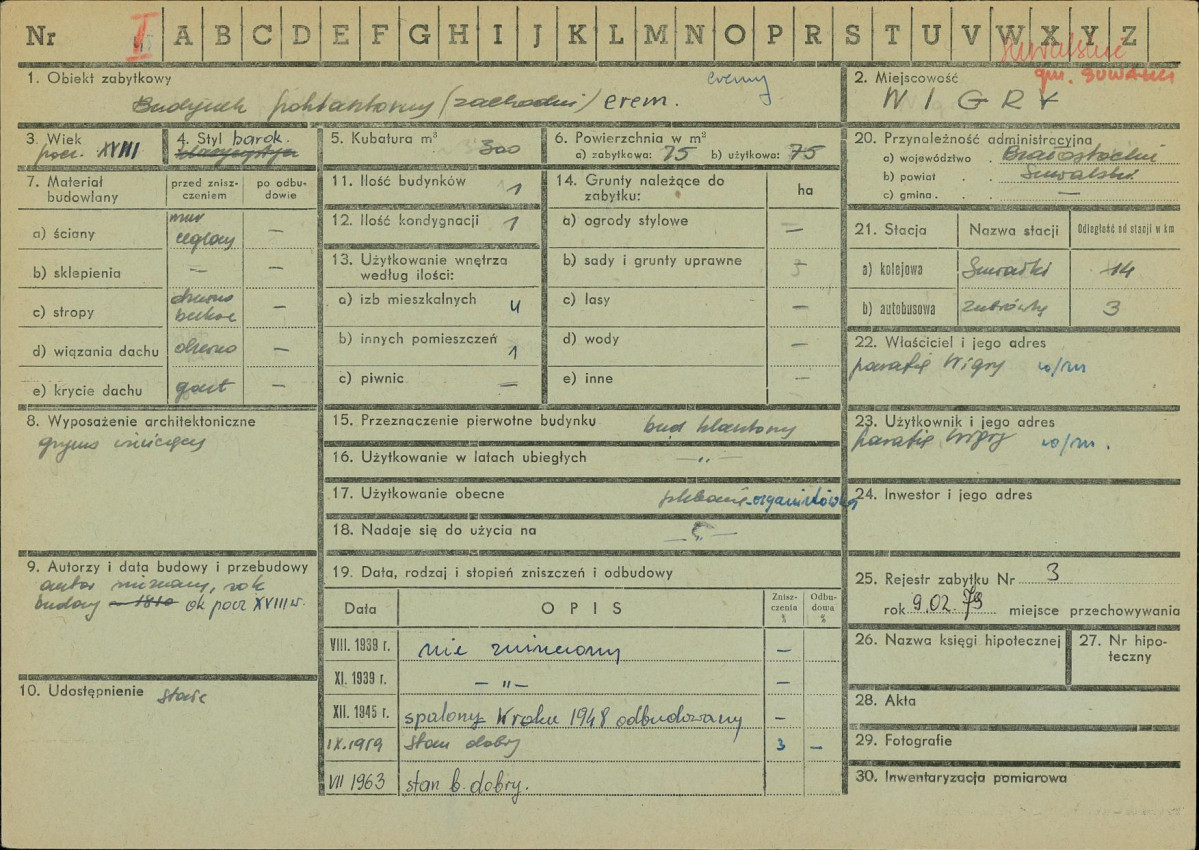 Nr I A B C D E F G H I J K L M N O P R S T U V W X Y Z
suwalskie
gm. SUWAŁKI
1. Obiekt zabytkowy
eremy
Budynek poklasztorny (zachodni) erem.
2. Miejscowość
WIGRY
3. Wiek
pocz. XVIII
4. Styl barok.
5. Kubatura m³
300
6. Powierzchnia w m²
a) zabytkowa: 75 b) użytkowa: 75
20. Przynależność administracyjna
a) województwo . Białostockie
b) powiat . . Suwalski
c) gmina . . . —
7. Materiał budowlany
przed znisz-
czeniem
po odbu-
dowie
a) ściany
mur
ceglany
—
b) sklepienia
—
—
c) stropy
drewno
belkowe
—
d) wiązania dachu
drewno
—
e) krycie dachu
gont
—
11. Ilość budynków
1
12. Ilość kondygnacji
1
13. Użytkowanie wnętrza
według ilości:
a) izb mieszkalnych
4
b) innych pomieszczeń
1
c) piwnic
—
14. Grunty należące do
zabytku:
ha
a) ogrody stylowe
—
b) sady i grunty uprawne
c) lasy
—
d) wody
—
e) inne
—
21. Stacja
Nazwa stacji
Odległość od stacji w km
a) kolejowa
Suwałki
14
b) autobusowa
3
22. Właściciel i jego adres
parafia Wigry w/m
8. Wyposażenie architektoniczne
gzyms wieńczący
15. Przeznaczenie pierwotne budynku
bud klasztorny
16. Użytkowanie w latach ubiegłych
— „ —
17. Użytkowanie obecne
plebania-organistówka
18. Nadaje się do użycia na
— „ —
23. Użytkownik i jego adres
parafia Wigry w/m.
24. Inwestor i jego adres
9. Autorzy i data budowy i przebudowy
autor nieznany, rok
budowy ~ 1810 ok pocz XVIII w.
10. Udostępnienie
stałe
19. Data, rodzaj i stopień zniszczeń i odbudowy
Data
OPIS
Znisz-
czenia
%
Odbu-
dowa
%
VIII. 1939 r.
nie zniszczony
—
XI. 1939 r.
— „ —
—
XII. 1945 r.
spalony W roku 1948 odbudowany
—
IX.1959
Stan dobry
3 —
VII 1963
stan b. dobry.
25. Rejestr zabytku Nr 3
rok 9.02.79 miejsce przechowywania
26. Nazwa księgi hipotecznej
27. Nr hipo-
teczny
28. Akta
29. Fotografie
30. Inwentaryzacja pomiarowa